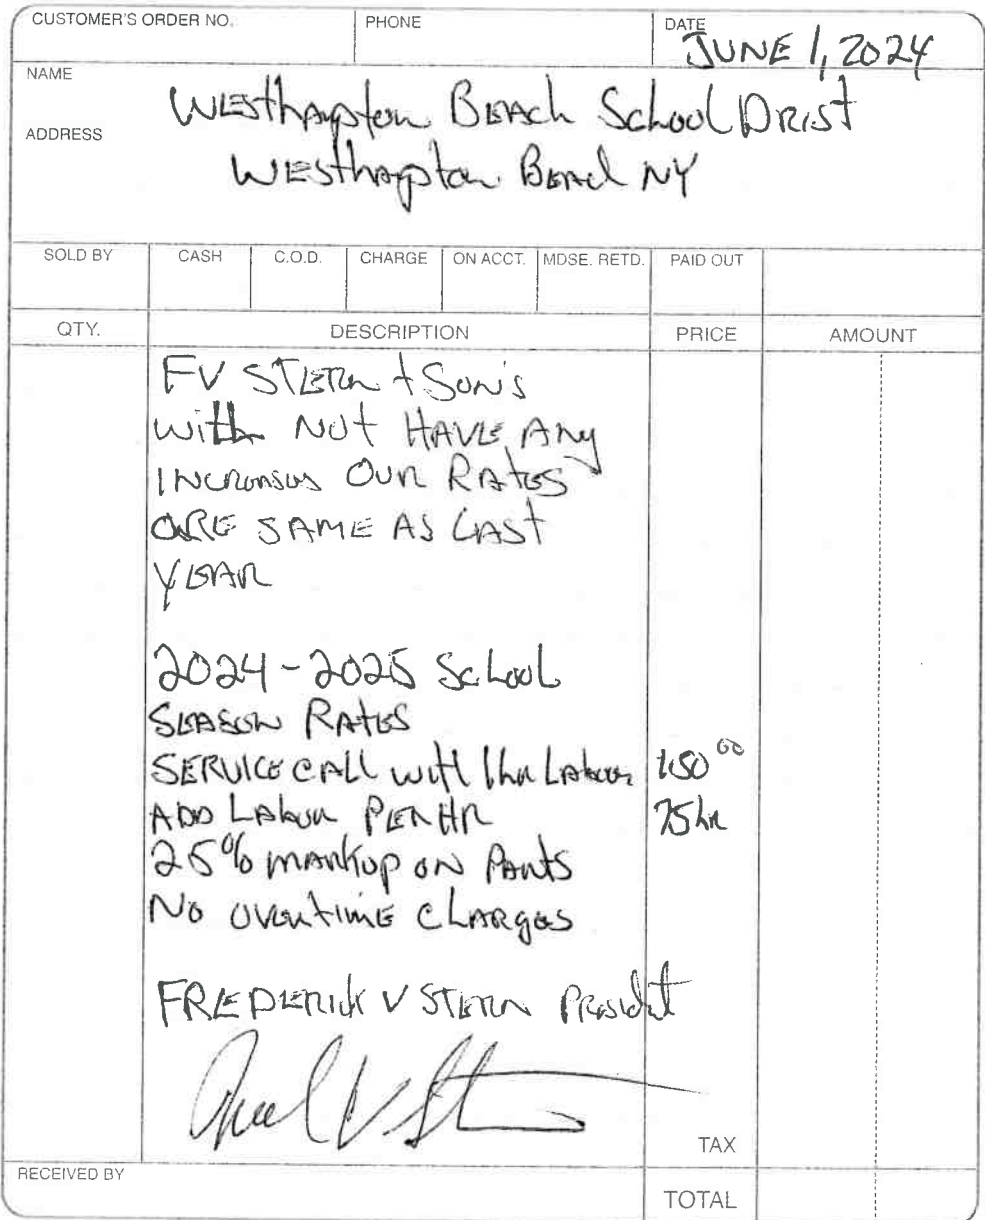 CUSTOMER'S ORDER NO. PHONE DATE
JUNE 1, 2024
NAME
Westhampton Beach School Drist
ADDRESS
Westhampton Beach NY
SOLD BY CASH C.O.D. CHARGE ON ACCT. MDSE. RETD. PAID OUT
QTY. DESCRIPTION PRICE AMOUNT
FV STERN + SON'S
with NOT HAVE Any
INCREASES OUR RATES
ARE SAME AS LAST
YEAR
2024-2025 School
SEASON RATES
SERVICE CALL with 1hr Labor 150 00
ADD Labor PER HR 75 hr
25% markup on Parts
No overtime charges
FREDERICK V STERN President
TAX
RECEIVED BY
TOTAL